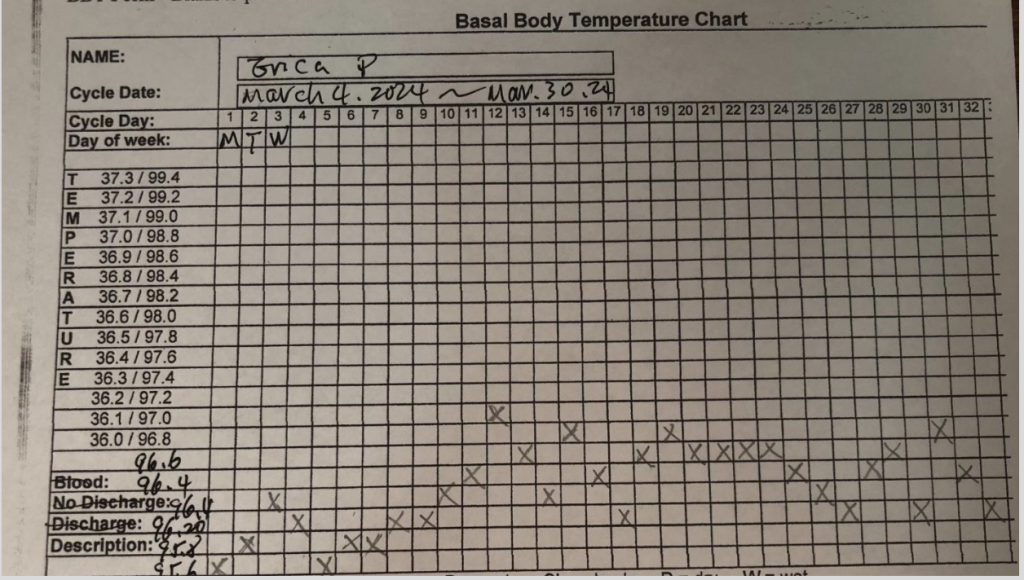 Basal Body Temperature Chart
NAME: Erica P
Cycle Date: March 4. 2024 ~ Mar. 30. 24
Cycle Day: 1 2 3 4 5 6 7 8 9 10 11 12 13 14 15 16 17 18 19 20 21 22 23 24 25 26 27 28 29 30 31 32
Day of week: M T W
T 37.3 / 99.4
E 37.2 / 99.2
M 37.1 / 99.0
P 37.0 / 98.8
E 36.9 / 98.6
R 36.8 / 98.4
A 36.7 / 98.2
T 36.6 / 98.0
U 36.5 / 97.8
R 36.4 / 97.6
E 36.3 / 97.4
36.2 / 97.2
36.1 / 97.0
36.0 / 96.8
96.6
Blood: 96.4
No Discharge: 96.4
Discharge: 96.20
Description: 95.8
95.6